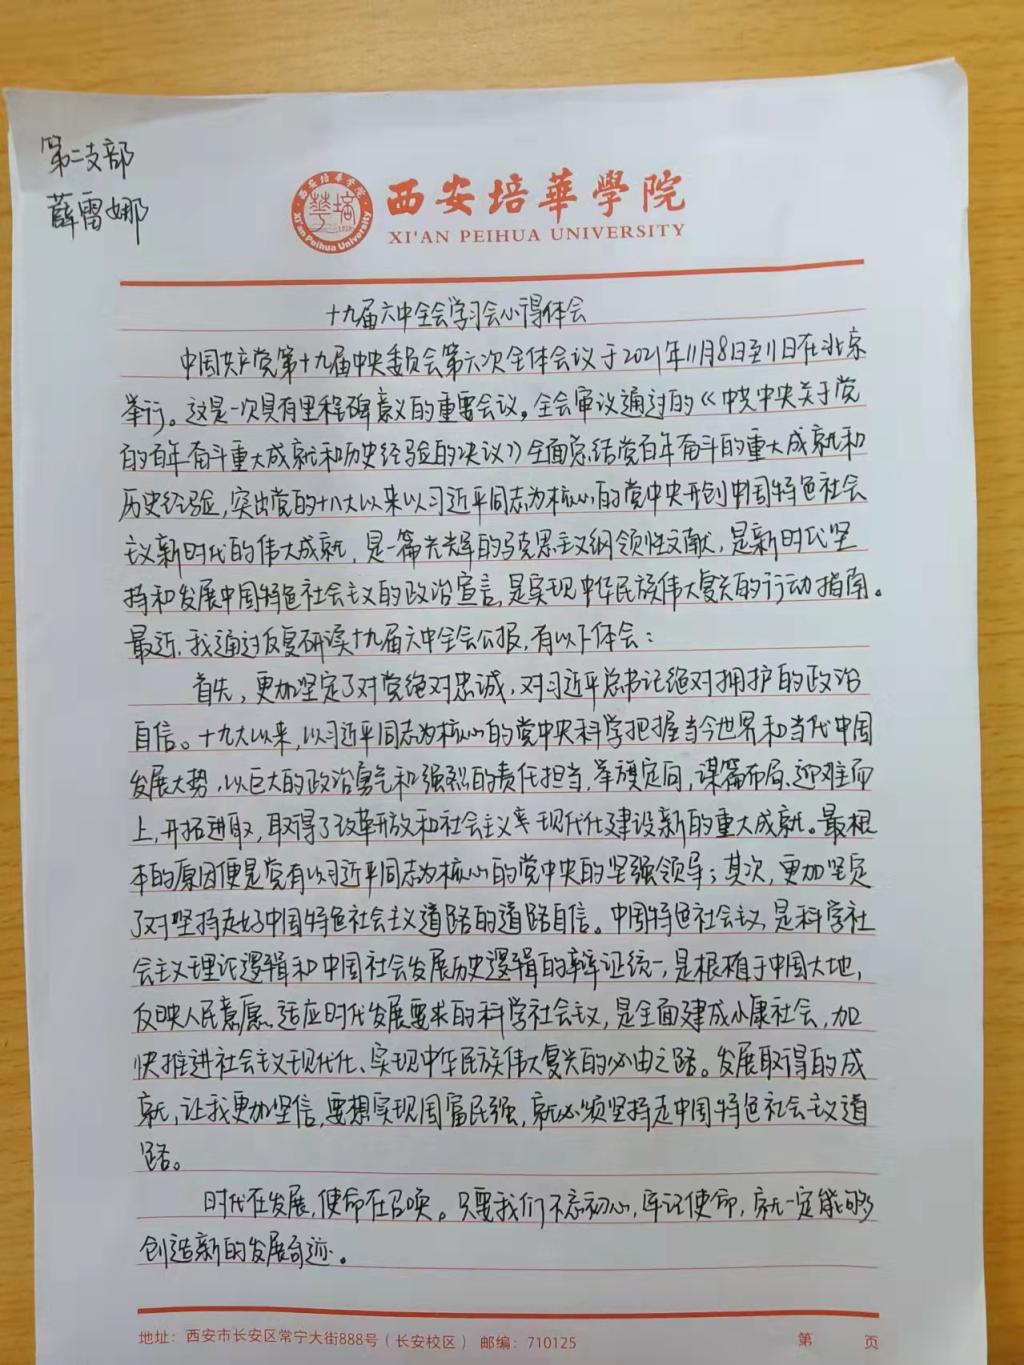 第二支部
薛雷娜
西安培華學院
西安培華學院
Xi'an Peihua University
1928
XI'AN PEIHUA UNIVERSITY
十九届六中全会学习会心得体会
中国共产党第十九届中央委员会第六次全体会议于2021年11月8日至11日在北京
举行。这是一次具有里程碑意义的重要会议。全会审议通过的《中共中央关于党
的百年奋斗重大成就和历史经验的决议》全面总结党百年奋斗的重大成就和
历史经验,突出党的十八大以来以习近平同志为核心的党中央开创中国特色社会
主义新时代的伟大成就,是一篇光辉的马克思主义纲领性文献,是新时代坚
持和发展中国特色社会主义的政治宣言,是实现中华民族伟大复兴的行动指南。
最近,我通过反复研读十九届六中全会公报,有以下体会:
首先,更加坚定了对党绝对忠诚,对习近平总书记绝对拥护的政治
自信。十九大以来,以习近平同志为核心的党中央科学把握当今世界和当代中国
发展大势,以巨大的政治勇气和强烈的责任担当,举旗定向,谋篇布局、迎难而
上,开拓进取,取得了改革开放和社会主义现代化建设新的重大成就。最根
本的原因便是党有以习近平同志为核心的党中央的坚强领导;其次,更加坚定
了对坚持走好中国特色社会主义道路的道路自信。中国特色社会主义,是科学社
会主义理论逻辑和中国社会发展历史逻辑的辩证统一,是根植于中国大地,
反映人民意愿、适应时代发展要求的科学社会主义,是全面建成小康社会,加
快推进社会主义现代化、实现中华民族伟大复兴的必由之路。发展取得的成
就,让我更加坚信,要想实现国富民强,就必须坚持走中国特色社会主义道
路。
时代在发展,使命在召唤。只要我们不忘初心,牢记使命,就一定能够
创造新的发展奇迹。
地址:西安市长安区常宁大街888号(长安校区) 邮编:710125 第 页